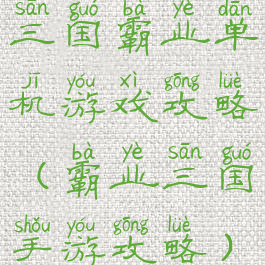 sān guó bà yè dān
三国霸业单
jī yóu xì gōng lüè
机游戏攻略
bà yè sān guó
（霸业三国
shǒu yóu gōng lüè
手游攻略）